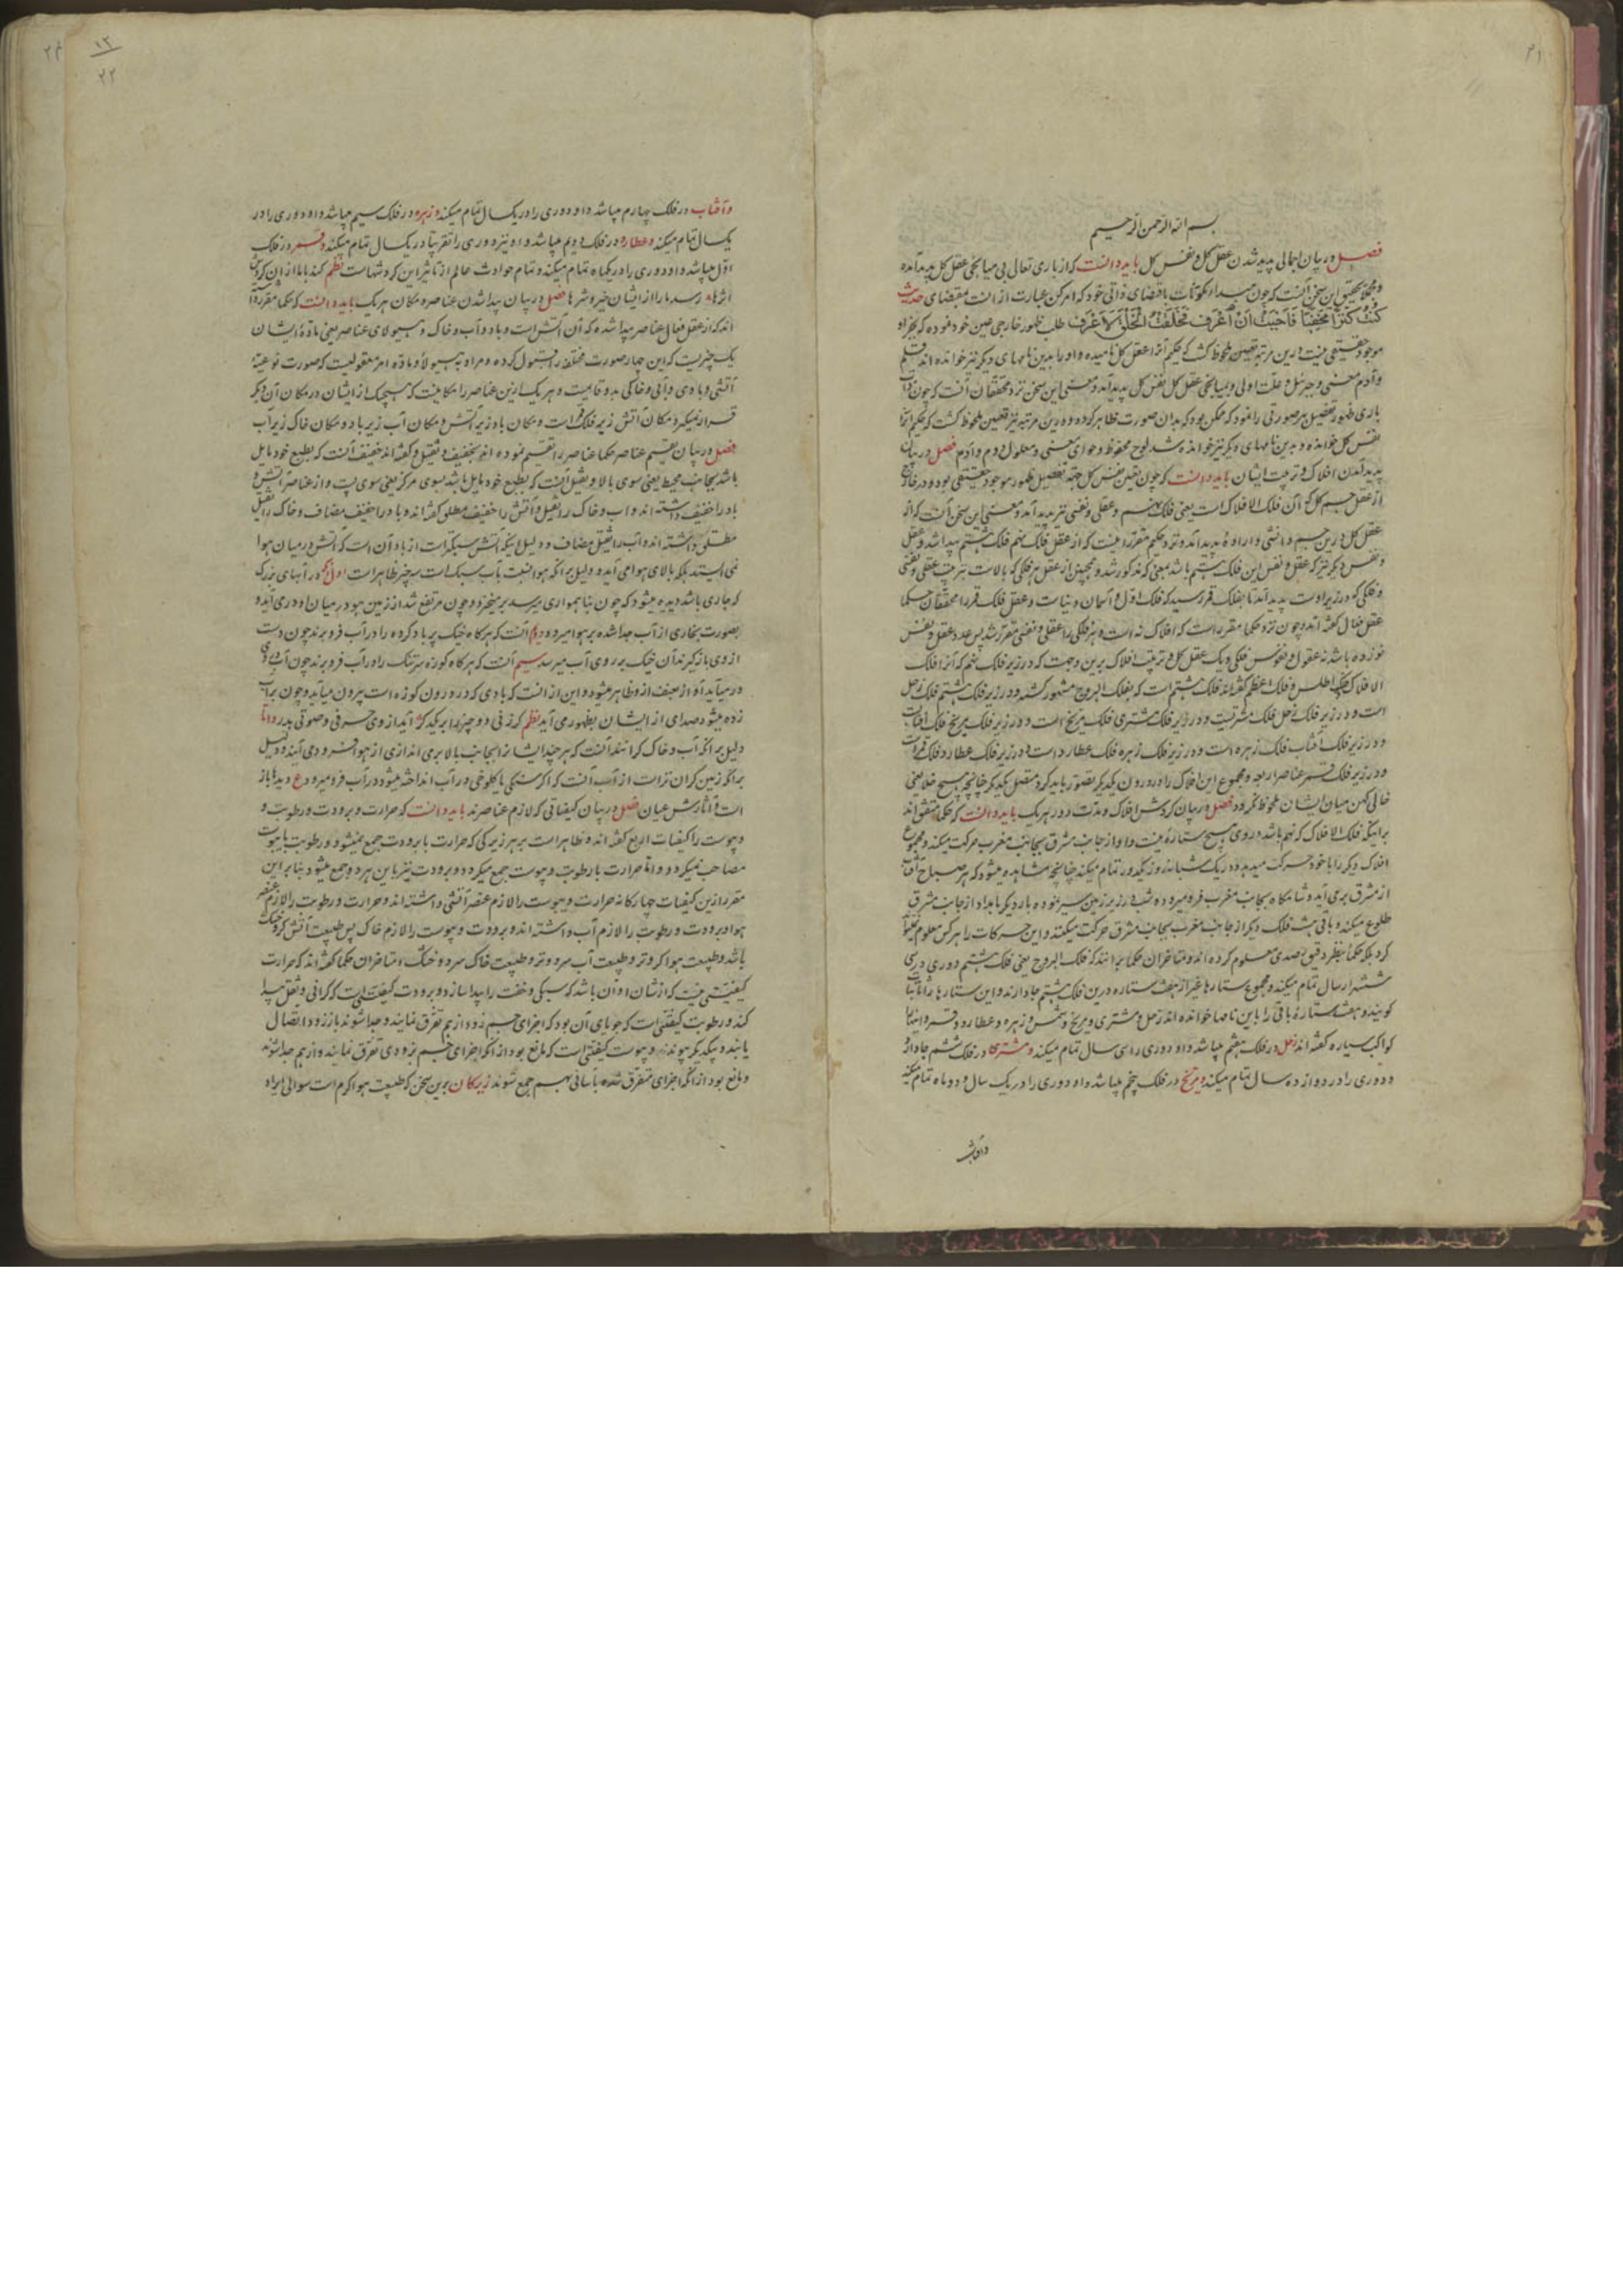 ۲۱
بسم الله الرحمن الرحیم
فصل در بیان اجمالی پدید شدن عقل کل و نفس کل باید دانست که از باری تعالی بی میانجی عقل کل پدید آمده
و تحقیق این سخن آنست که چون مبدا مکونات باقتضای ذاتی خود که امر کن عبارت از انست بمقتضای حدیث
کُنتُ کَنزاً مخفیّاً فَاَحببتُ اَن اُعرَف فخلقتُ الخلق لِاُعرَف طلب ظهور خارجی عین خود فرموده که بجز او
موجود حقیقی نیست درین مرتبه تعین ملحوظ کشت که حکیم آنرا عقل کل نامیده و او را بدین نامهای دیگر نیز خوانده اند قلم
و آدم معنی و جبرئیل و علت اولی و بمیانجی عقل کل نفس کل پدید آمد و معنی این سخن نزد محققان آنست که چون ذات
باری ظهور تفصیل هر صورتی را نمود که ممکن بود که بدان صورت ظاهر کردد درین مرتبه نیز تعین ملحوظ کشت که حکیم آنرا
نفس کل خوانده و بدین نامهای دیگر نیز خوانده شد لوح محفوظ و حوای معنی و معلول دوم و آدم فصل در بیان
پدید آمدن افلاک و ترتیب ایشان باید دانست که چون تعین نفس کل جهة تفصیل ظهور موجود حقیقی بود و در خارج
از عقل جسم کل که آن فلک الافلاک است یعنی فلک نهم و عقلی و نفسی نیز پدید آمد و معنی این سخن آنست که از
عقل کل درین جسم دانشی و اراده پدید آمده و نزد حکیم مقرر اینست که از عقل فلک نهم فلک هشتم پیدا شد و عقل
و نفس دیگر نیز که عقل و نفس این فلک هشتم باشد بمعنی که مذکور شد و همچنین از عقل هر فلکی که بالاست بترتیب عقلی و نفسی
و فلکی که در زیر اوست پدید آمد تا بفلک قمر رسید که فلک اول و آسمان دنیاست و عقل فلک قمر را محققان حکما
عقل فعال کفته اند و چون نزد حکما مقرر است که افلاک نه است و هر فلکی را عقلی و نفسی مقرر شد پس عدد عقل و نفس
نوزده باشد نه عقول و نه نفوس فلکی و یک عقل کل و ترتیب افلاک برین وجهست که در زیر فلک نهم که آنرا فلک
الافلاک و فلک اطلس و فلک اعظم کفته اند فلک هشتم است که بفلک البروج مشهور کشته و در زیر فلک هشتم فلک زحل
است و در زیر فلک زحل فلک مشتریست و در زیر فلک مشتری فلک مریخ است و در زیر فلک مریخ فلک افتابست
و در زیر فلک آفتاب فلک زهره است و در زیر فلک زهره فلک عطارد است و در زیر فلک عطارد فلک قمر است
و در زیر فلک قمر عناصر اربعه و مجموع این افلاک را در درون یکدیگر تصور باید کرد متصل بیکدیگر چنانچه هیچ خلا یعنی
خالی کهن میان ایشان ملحوظ نکردد فصل در بیان کردش افلاک و مدت دور هر یک باید دانست که حکما متفق اند
برانکه فلک الافلاک که نهم باشد در وی هیچ ستاره نیست و او از جانب مشرق بجانب مغرب حرکت میکند و مجموع
افلاک دیگر را با خود حرکت میدهد و در یک شبانه روز یک دور تمام میکند چنانچه مشاهده میشود که هر صباح آفتاب
از مشرق برمی آید و شامکاه بجانب مغرب فرو میرود و شب در زیر زمین سیر نموده بار دیگر بامداد از جانب مشرق
طلوع میکند و باقی هشت فلک دیگر از جانب مغرب بجانب مشرق حرکت میکنند و این حرکات را هر کس معلوم نتواند
کرد بلکه حکما بنظر دقیق و رصدی معلوم کرده اند و متاخران حکما برانند که فلک البروج یعنی فلک هشتم دوری در سی
شش هزار سال تمام میکند و مجموع ستارها غیر از هفت ستاره درین فلک هشتم جا دارند و این ستارها را ثابتات
کویند و هفت ستاره باقی را باین نامها خوانده اند زحل و مشتری و مریخ و شمس و زهره و عطارد و قمر و اینها را
کواکب سیاره کفته اند زحل در فلک هفتم میباشد و او دوری را سی سال تمام میکند و مشتری در فلک ششم جا دارد
و دوری را در دوازده سال تمام میکند و مریخ در فلک پنجم میباشد و او دوری را در یک سال و ده ماه تمام میکند
و آفتاب
۲۲
۱۲
۲۲
و آفتاب در فلک چهارم میباشد و او دوری را در یک سال تمام میکند و زهره در فلک سیم میباشد و او دوری را در
یک سال تمام میکند و عطارد در فلک دویم میباشد و او نیز دوری را تقریباً در یک سال تمام میکند و قمر در فلک
اول میباشد و او دوری را در یکماه تمام میکند و تمام حوادث عالم از تاثیر این کردشهاست نظم کند بابا ازین کردش
اثرها رسد ما را از ایشان خیر و شرها فصل در بیان پیدا شدن عناصر و مکان هر یک باید دانست که حکما مقرر کرده
اند که از عقل فعال عناصر پیدا شده که آن آتش است و باد و آب و خاک و هیولای عناصر یعنی ماده ایشان
یک چیزیست که این چهار صورت مختلفه را قبول کرده و مراد بهیولا و ماده امر معقولیست که صورت نوعیه
آتشی و بادی و آبی و خاکی بدو قایمست و هر یک ازین عناصر را مکانیست که هیچیک از ایشان در مکان آن دیگر
قرار نمیکیرد مکان آتش زیر فلک قمر است و مکان باد زیر آتش و مکان آب زیر باد و مکان خاک زیر آب
فصل در بیان تقسیم عناصر حکما عناصر را تقسیم نموده اند بخفیف و ثقیل و کفته اند خفیف آنست که بطبع خود مایل
باشد بجانب محیط یعنی سوی بالا و ثقیل آنست که بطبع خود مایل باشد بسوی مرکز یعنی سوی پست و از عناصر آتش و
باد را خفیف داشته اند و اب و خاک را ثقیل و آتش را خفیف مطلق کفته اند و باد را خفیف مضاف و خاک را ثقیل
مطلق داشته اند و آب را ثقیل مضاف و دلیل اینکه آتش سبکتر است از باد آن است که آتش در میان هوا
نمی ایستد بلکه بالای هوا می آید و دلیل برانکه هوا نسبت بآب سبک است سه چیز ظاهر است اول آنکه در آبهای بزرک
که جاری باشد دیده میشود که چون بناهمواری میرسد بر میخیزد و چون مرتفع شد از زمین هوا در میان او در می آید و
بصورت بخاری از آب جدا شده بر هوا میرود دویم آنست که هرکاه خیک پر باد کرده را در آب فرو برند چون دست
از وی باز کیرند آن خیک بر روی آب میرسد سیم آنست که هرکاه کوزه سر تنک را در آب فرو برند چون آب در وی
در میآید آواز ضعیف از و ظاهر میشود و این از انست که بادی که در درون کوزه است بیرون میآید و چون بر آب
زده میشود صدای از ایشان بظهور می آید نظم کر زنی دو چیز را بر یکدکر آید از وی حرفی و صوتی بدر و اما
دلیل برانکه آب و خاک کرانند آنست که هر چند ایشانرا بجانب بالا برمی اندازی از هوا فرود می آیند و دلیل
برانکه زمین کران تر است از آب آنست که اکر سنکی یا کلوخی در آب انداخته میشود در آب فرو میرود ع دیده باز
است و آثارش عیان فصل در بیان کیفیاتی که لازم عناصرند باید دانست که حرارت و برودت و رطوبت و
و یبوست را کیفیات اربع کفته اند و ظاهر است بر هر زیرکی که حرارت با برودت جمع نمیشود و رطوبت با یبوست
مصاحب نمیکردد و اما حرارت با رطوبت و یبوست جمع میکردد و برودت نیز باین هر دو جمع میشود بنابر این
مقرر ازین کیفیات چهارکانه حرارت و یبوست را لازم عنصر آتشی داشته اند و حرارت و رطوبت را لازم عنصر
هوا و برودت و رطوبت را لازم آب داشته اند و برودت و یبوست را لازم خاک پس طبیعت آتش کرم و خشک
باشد و طبیعت هوا کرم و تر و طبیعت آب سرد و تر و طبیعت خاک سرد و خشک و متاخران حکما کفته اند که حرارت
کیفیتی نیست که از شان او آن باشد که سبکی و خفت را پیدا سازد و برودت کیفیتی است که کرانی و ثقل پیدا
کند و رطوبت کیفیتی است که جویای آن بود که اجزای جسم زود از هم تفرق نمایند و جدا شوند باز زود اتصال
یابند و بیکدیگر پیوندند و یبوست کیفیتی است که مانع بود از انکه اجزای جسم بزودی تفرق نمایند و از هم جدا شوند
و مانع بود از انکه اجزای متفرق شده بآسانی بهم جمع شوند زیرکان برین سخن که طبیعت هوا کرم است سوالی ایراد